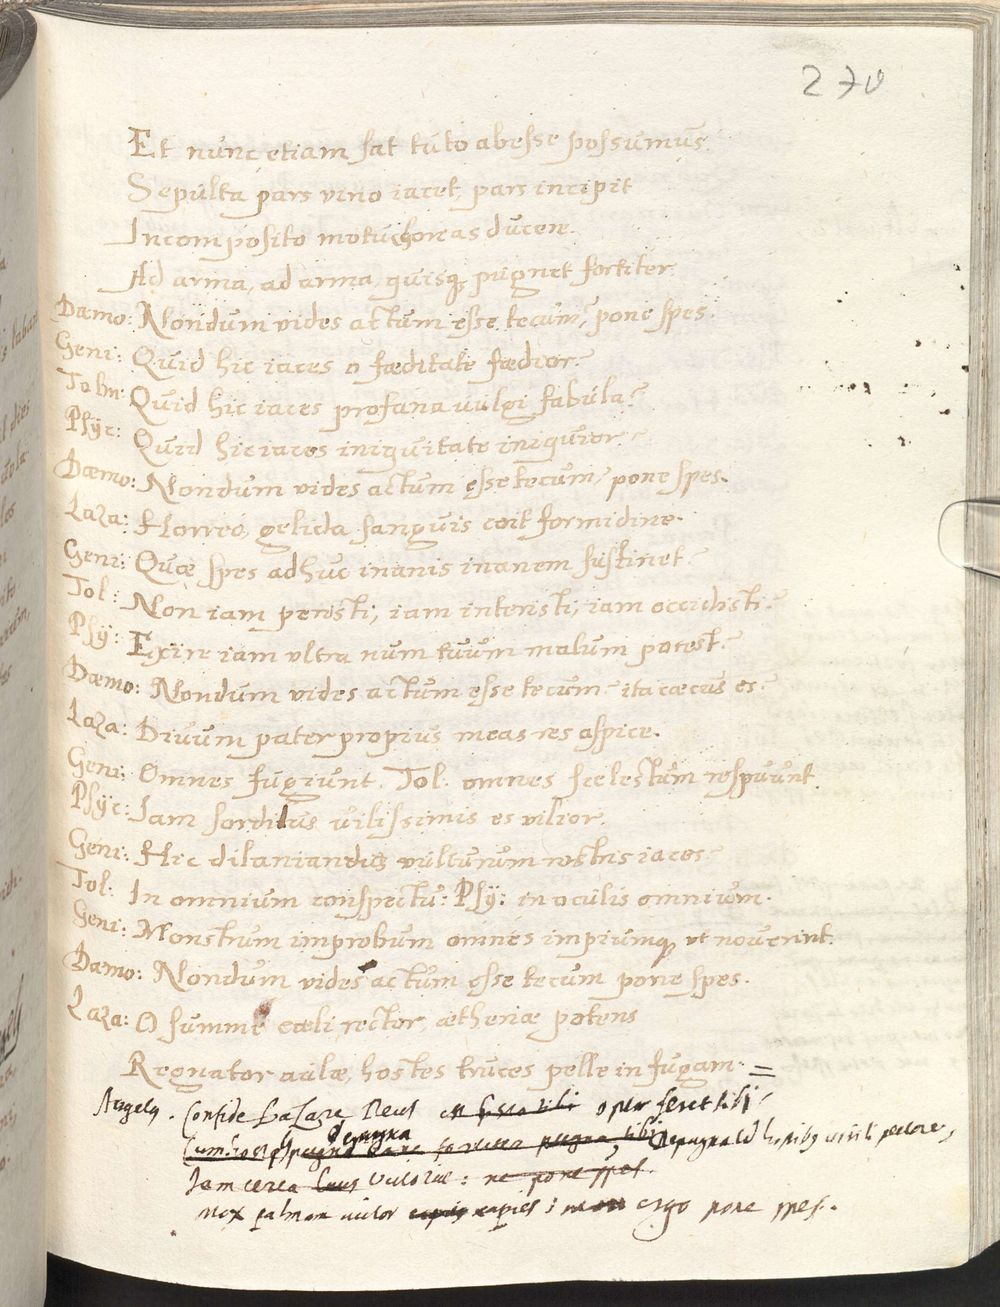 270
Et nunc etiam sat tuto abesse possumus.
Sepulta pars vino iacet, pars incipit
Incomposito motu choreas ducere.
Ad arma, ad arma, quisq; pugnet fortiter.
Dæmo: Nondum vides actum esse tecum? pone spes.
Geni: Quid hic iaces o fæditate fædior?
Tolm: Quid hic iaces profana vulgi fabula?
Psyc: Quid hic iaces iniquitate iniquior?
Dæmo: Nondum vides actum esse tecum? pone spes.
Laza: Horreo, gelida sanguis coit formidine.
Geni: Quæ spes adhuc inanis inanem sustinet?
Tol: Non iam peristi, iam interisti, iam occidisti?
Psy: Exire iam ultra num tuum malum potest?
Dæmo: Nondum vides actum esse tecum? ita cæcus es?
Laza: Divum pater propius meas res aspice.
Geni: Omnes fugiunt. Tol. omnes scelestum respuunt
Psyc: Iam sordibus vilissimis es vilior.
Geni: Hic dilaniandus vulturum rostris iaces
Tol. In omnium conspectu: Psy: in oculis omnium.
Geni: Monstrum improbum omnes impiumq; ut noverint.
Dæmo: Nondum vides actum esse tecum pone spes.
Laza: O summe cœli rector, æthereæ potens
Regnator aulæ, hostes truces pelle in fugam.
Angelus. Confide Lazare Deus opem feret tibi
depugna
Depugna hostibus virili pectore,
Iam certa victoriæ: ne pone spes.
Mox palmam victor capies: ergo pone spes.